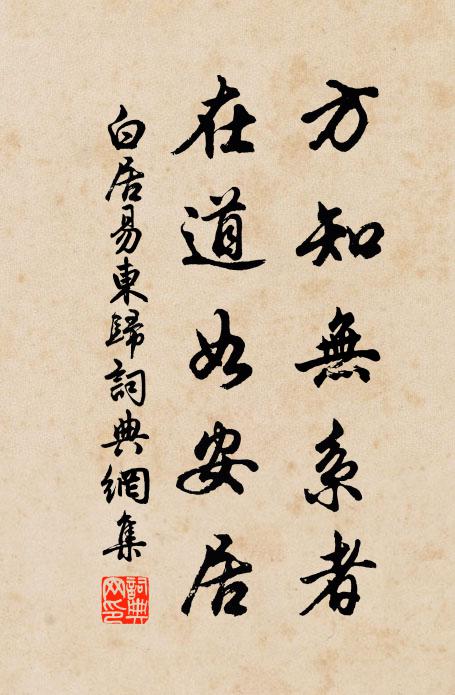 方知無系者
在道如安居
白居易東歸詞典網集
詞典
网印